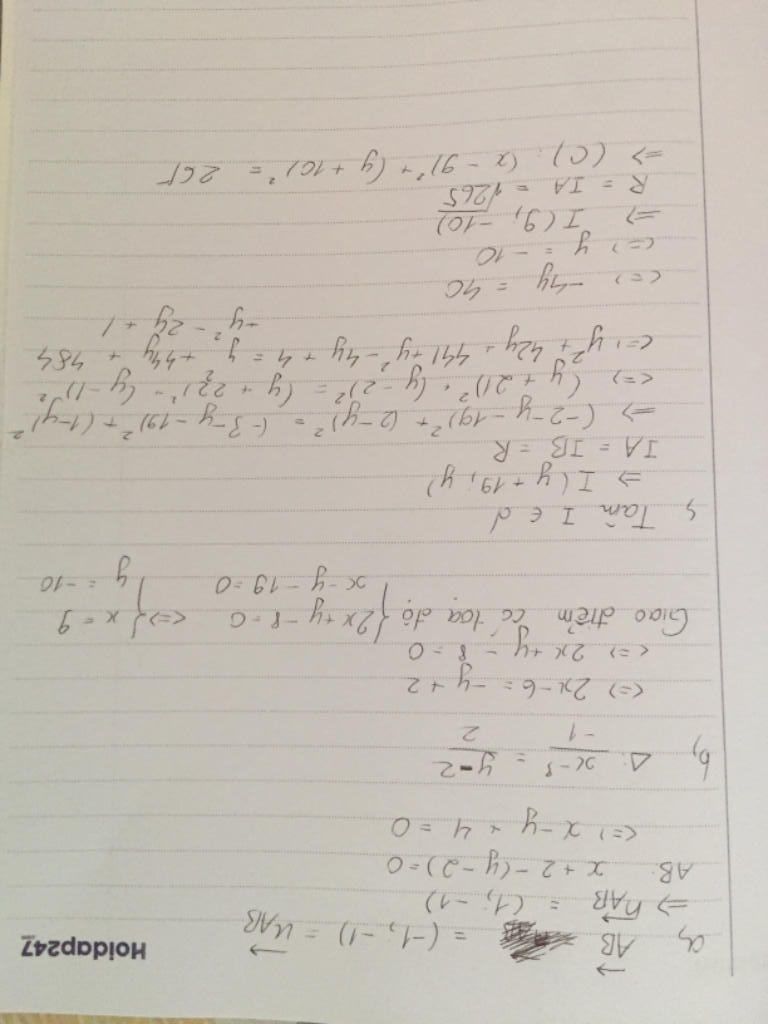 Hoidap247
a, AB = (-1; -1) = u AB
=> n AB = (1; -1)
AB: x + 2 - (y - 2) = 0
<=> x - y + 4 = 0
b, Δ: (x - 3)/-1 = (y - 2)/2
<=> 2x - 6 = -y + 2
<=> 2x + y - 8 = 0
Giao điểm có toạ độ { 2x + y - 8 = 0 <=> { x = 9
x - y - 19 = 0 y = -10
Tâm I ∈ d
=> I (y + 19; y)
IA = IB = R
=> (-2 - y - 19)² + (2 - y)² = (-3 - y - 19)² + (1 - y)²
<=> (y + 21)² + (y - 2)² = (y + 22)² + (y - 1)²
<=> y² + 42y + 441 + y² - 4y + 4 = y² + 44y + 484
+ y² - 2y + 1
<=> -4y = 40
<=> y = -10
=> I (9; -10)
R = IA = √265
=> (C): (x - 9)² + (y + 10)² = 265